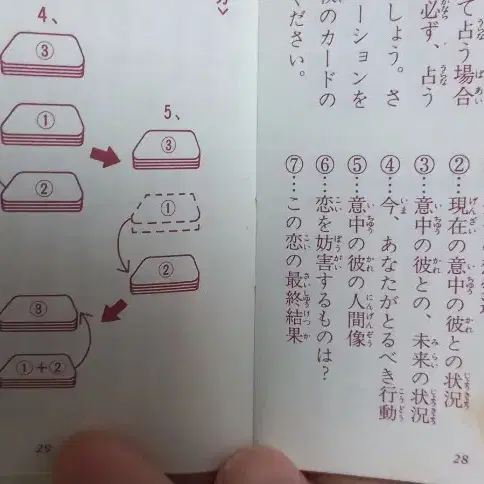 て占う場合
必ず、占う
しょう。さ
ーションを
のカードの
ください。
②…現在の意中の彼との状況
③…意中の彼との、未来の状況
④…今、あなたがとるべき行動
⑤…意中の彼の人間像
⑥…恋を妨害するものは?
⑦…この恋の最終結果
28
4、
③
①
②
5、
③
①
②
③
①+②
29